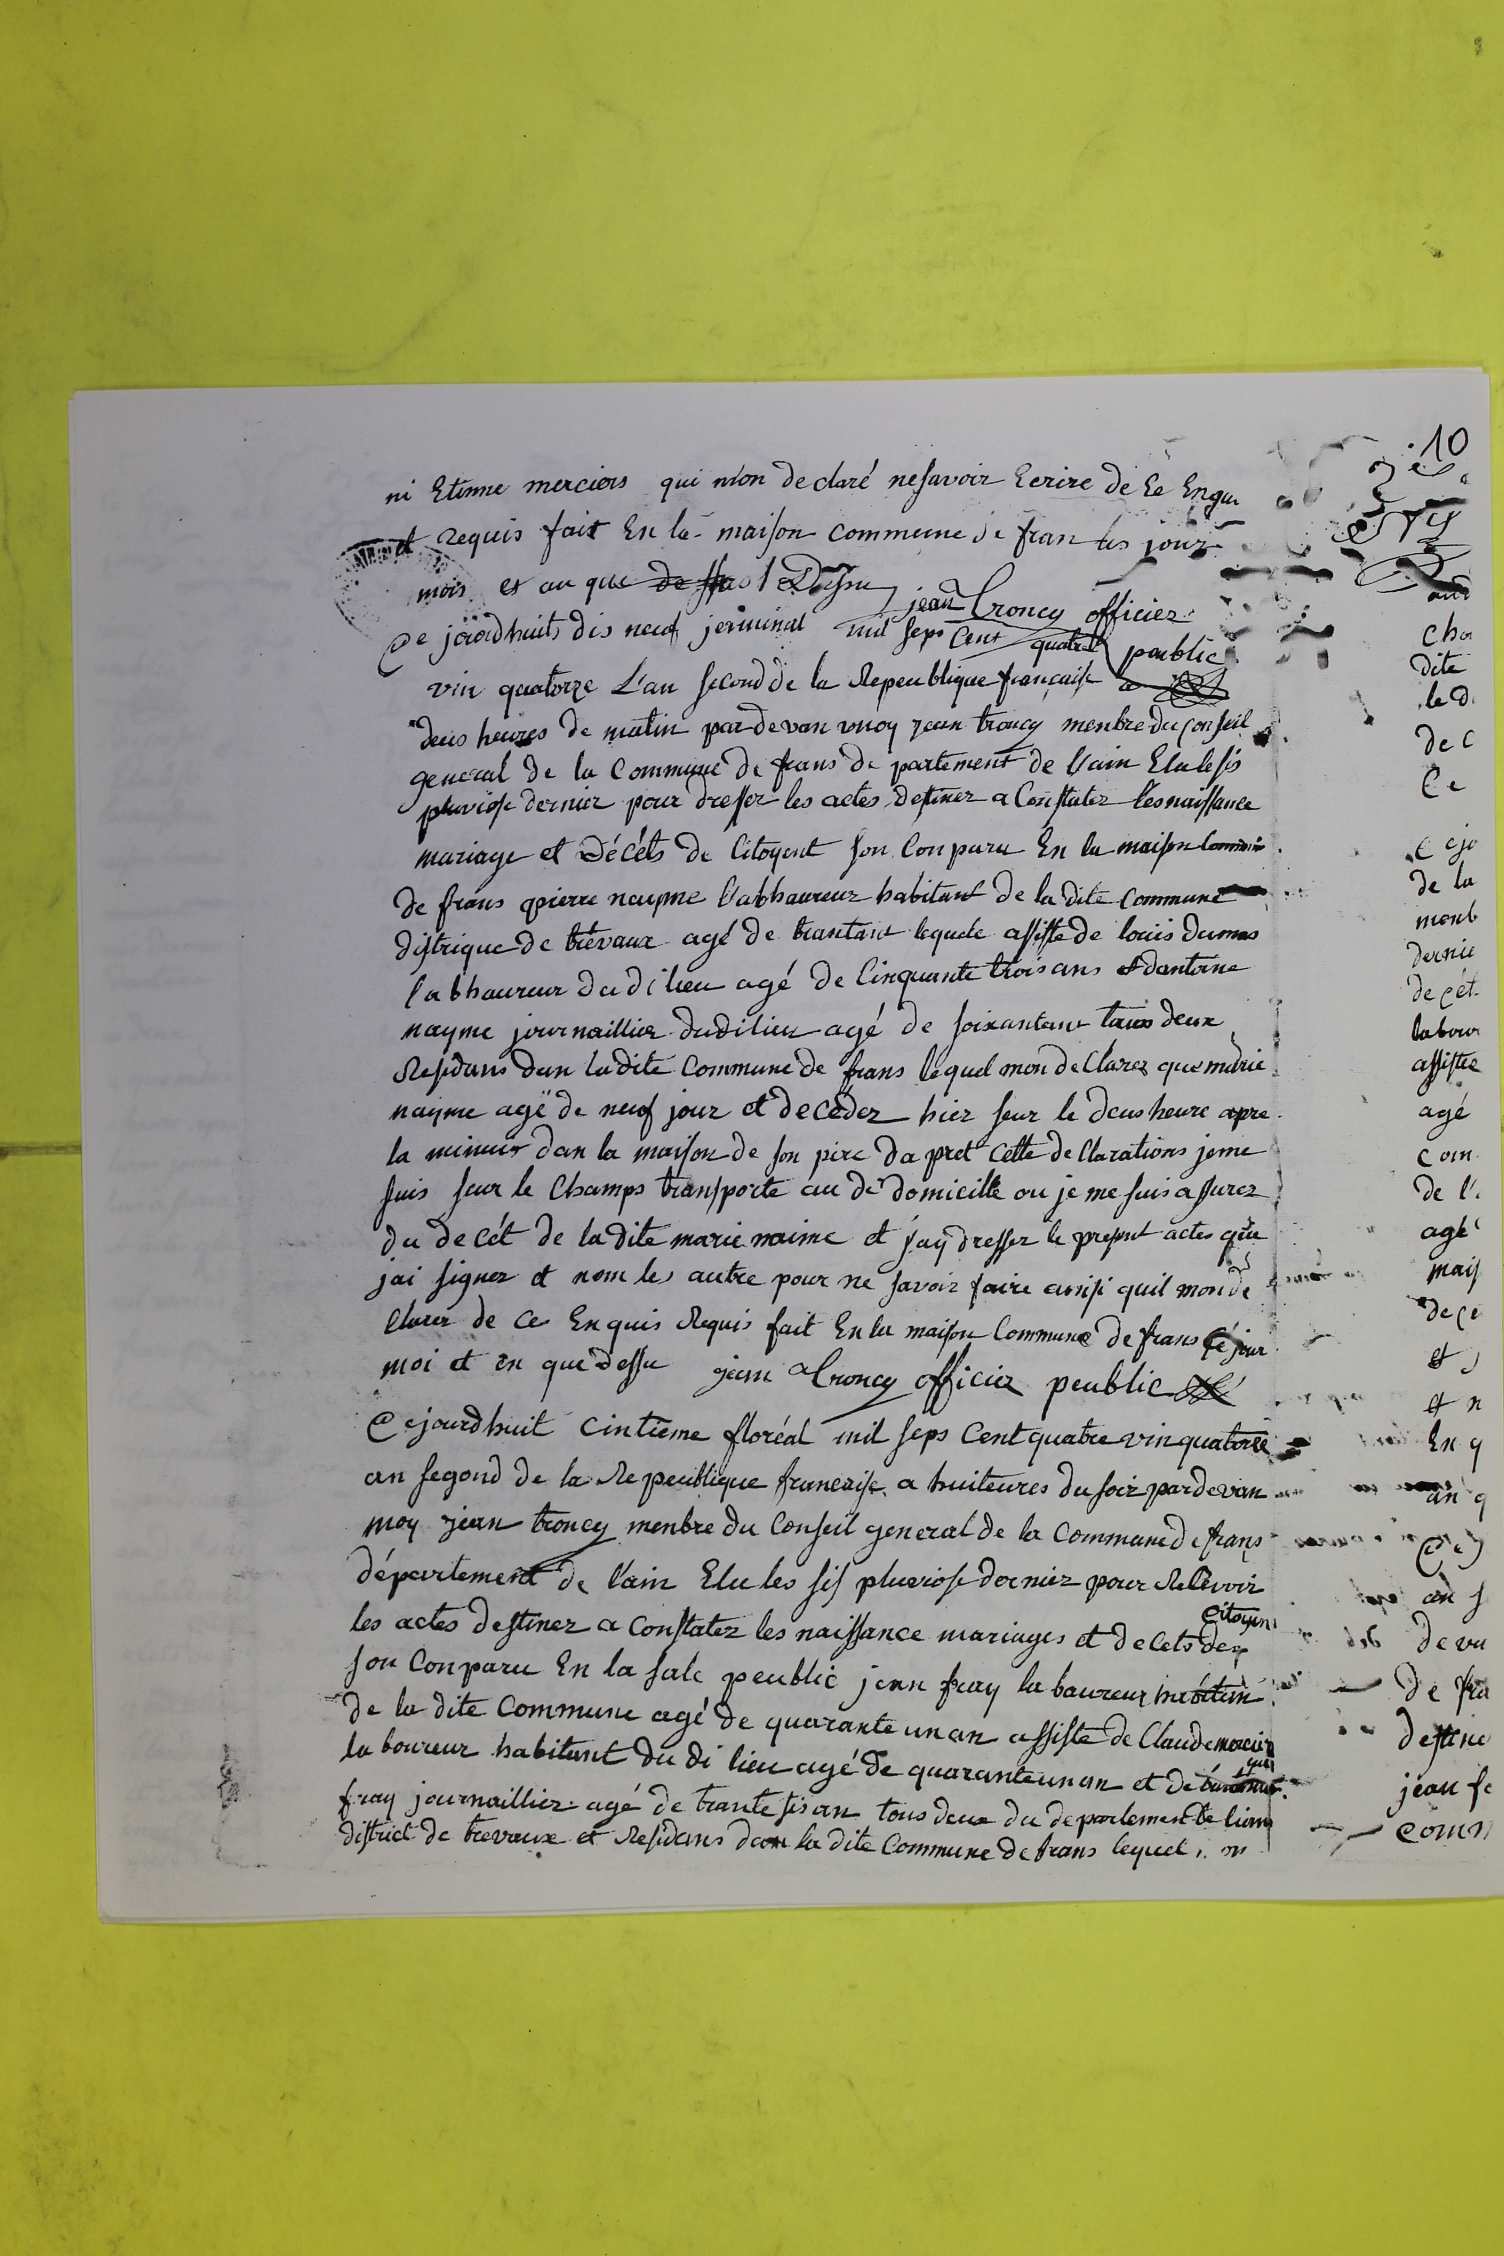 .10
ni Etienne merciers qui mon declaré nesavoir Ecrire de Ce Enqui
et requis fait En la maison commeune de fran les jour
mois et an que de ssus Dessu jean Troncy officier
Ce jourdhuits dis neuf jerminal mil seps Cent quatre public
vin quatorze L'an second de la Repeublique française a
deus heures de matin par devan moy jean troncy menbre du Conseil
general de la Commune de frans de partement de l'ain Elu le sis
pluviose dernier pour dresser les actes destinez a Constatez les naissance
mariage et Décéts de Citoyent son Conparu En la maison Commune
de frans pierre nayme labhaureur habitant de la dite Commune
distrique de trévaux agé de trantant lequele assiste de louis dumas
labhaureur du di lieu agé de Cinquante trois ans et dantoine
nayme journaillier du di lieu agé de soixantant taus deux
Residans dan la dite Commune de frans lequel mon de Clarez que marie
nayme agé de neuf jour et decedez hier seur le deus heure apre
la minuit dan la maison de son pere da pret Cette de Clarations je me
suis seur le Champs transporte au de domicille ou je me suis assurez
du decét de la dite marie naime et j'ay dresser le present actes que
jai signez et nom les autre pour ne savoir faire ainsi quil mon de
Clarer de Ce Enquis Requis fait En la maison Commune de frans Cé jour
moi et en que dessu jean Troncy officier peublic
Cejourdhuit cintieme floréal mil seps Cent quatre vin quatorze
an segond de la Repeublique francaise a huiteures du soir pardevan
moy jean troncy menbre du Conseil general de la Commune de frans
département de l'ain Elu les sis pluviose dernier pour Relevoir
les actes destinez a Constatez les naissance mariages et decets des citoyens
son Conparu En la sale peublic jean fray la boureur habitan
de la dite Commune agé de quarante un an assiste de Claude mercier
la boureur habitant du di lieu agé de quarante un an et de
fray journaillier agé de trante sis an tous deux du departement de
district de trevaux et Residans dan la dite Commune de frans lequel on
cho
dite
le d
de C
Ce
Cejo
de la
menb
dernie
de cét
labour
assiste
agé
com
de l'
agé
mais
de ce
et
et n
En q
an q
Ce j
an s
de va
de fra
destine
jean fr
comm